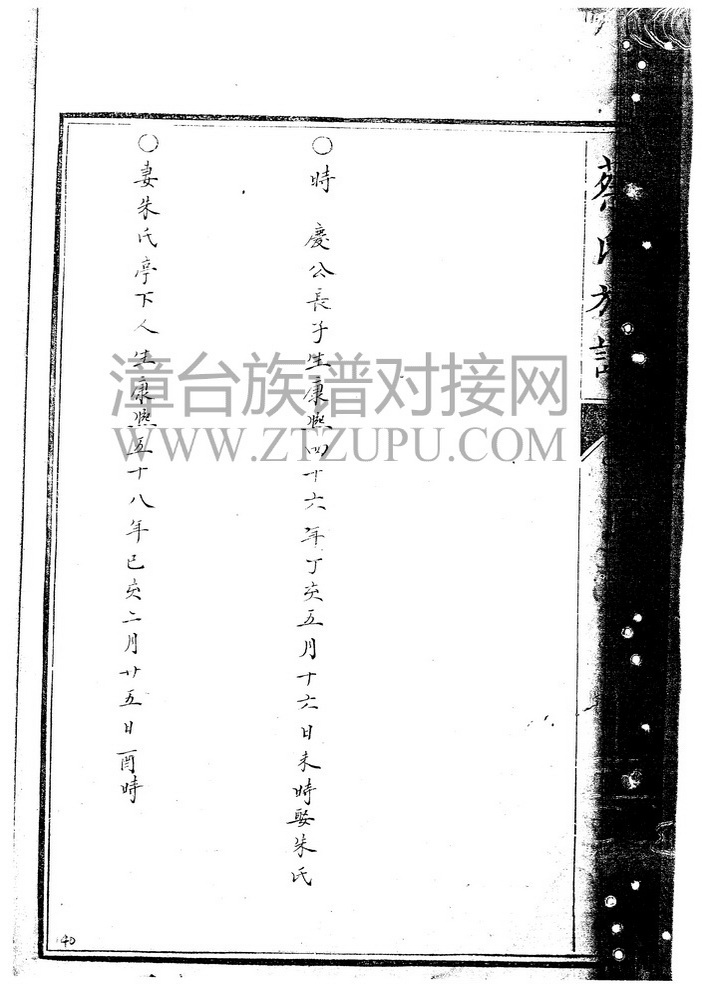 蔡氏族譜
○時 慶公長子生康熙四十六年丁亥五月十六日未時娶朱氏
○妻朱氏亭下人生康熙五十八年己亥二月廿五日酉時
漳台族谱对接网
WWW.ZTZUPU.COM
40